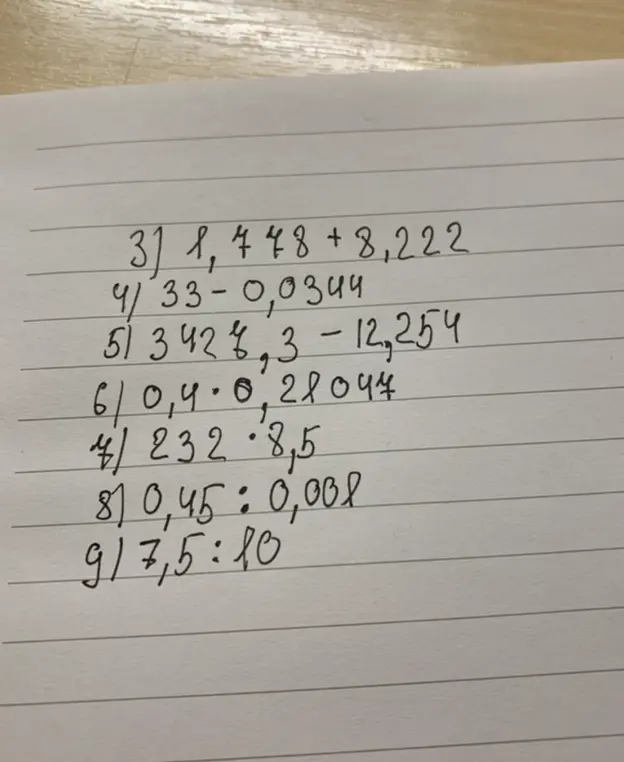 3) 1,778 + 8,222
4) 33 - 0,0344
5) 3427,3 - 12,254
6) 0,4 · 0,21047
7) 232 · 8,5
8) 0,45 : 0,001
9) 7,5 : 10